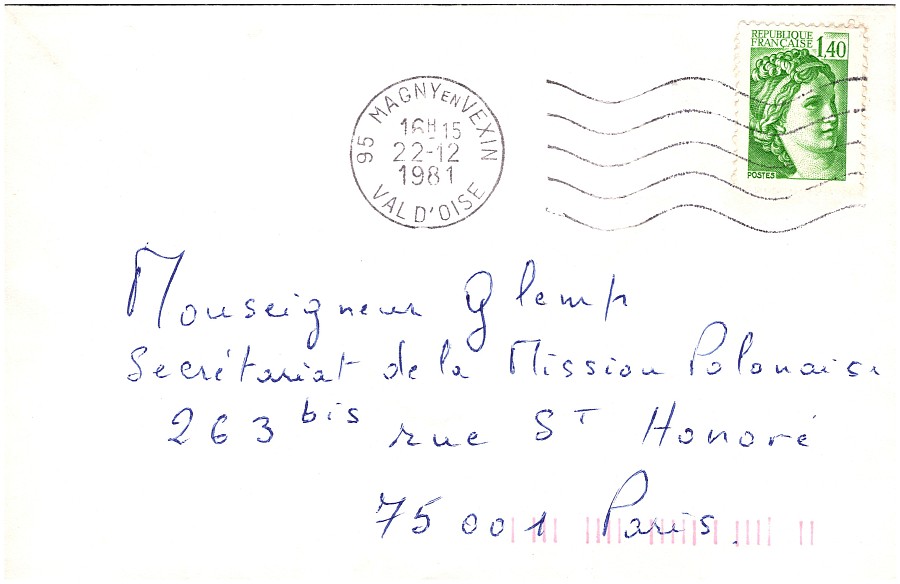 REPUBLIQUE
FRANÇAISE 1,40
POSTES
95 MAGNY EN VEXIN
16H15
22-12
1981
VAL D'OISE
Monseigneur Glemp
Secrétariat de la Mission Polonaise
263 bis rue St Honoré
75001 Paris.